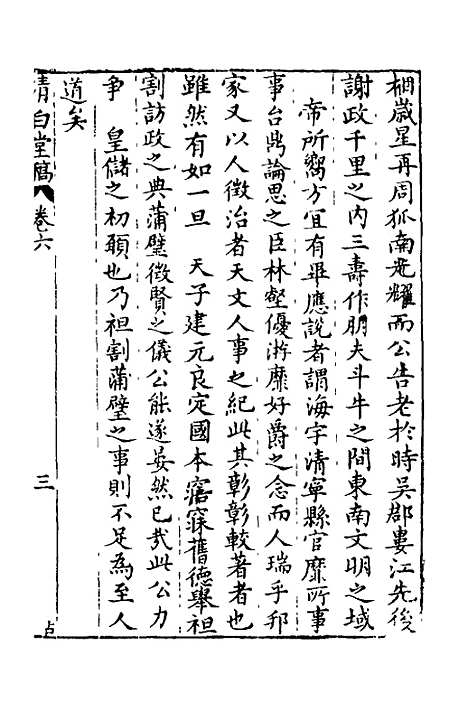 棝歲星再周狐南兗耀而公告老於時吳郡婁江先後
謝政千里之内三壽作朋夫斗牛之間東南文明之域
帝所嚮方宜有畢應説者謂海宇清寧縣官靡所事
事台鼎論思之臣林壑優游靡好爵之念而人瑞乎邦
家又以人徵治者天文人事之紀此其彰彰較著者也
雖然有如一旦 天子建元良定國本寤寐舊德舉袒
割訪政之典蒲璧徵賢之儀公能遂晏然已㢤此公力
争 皇儲之初願也乃袒割蒲璧之事則不足為至人
道矣
清白堂稿 卷六
三
占